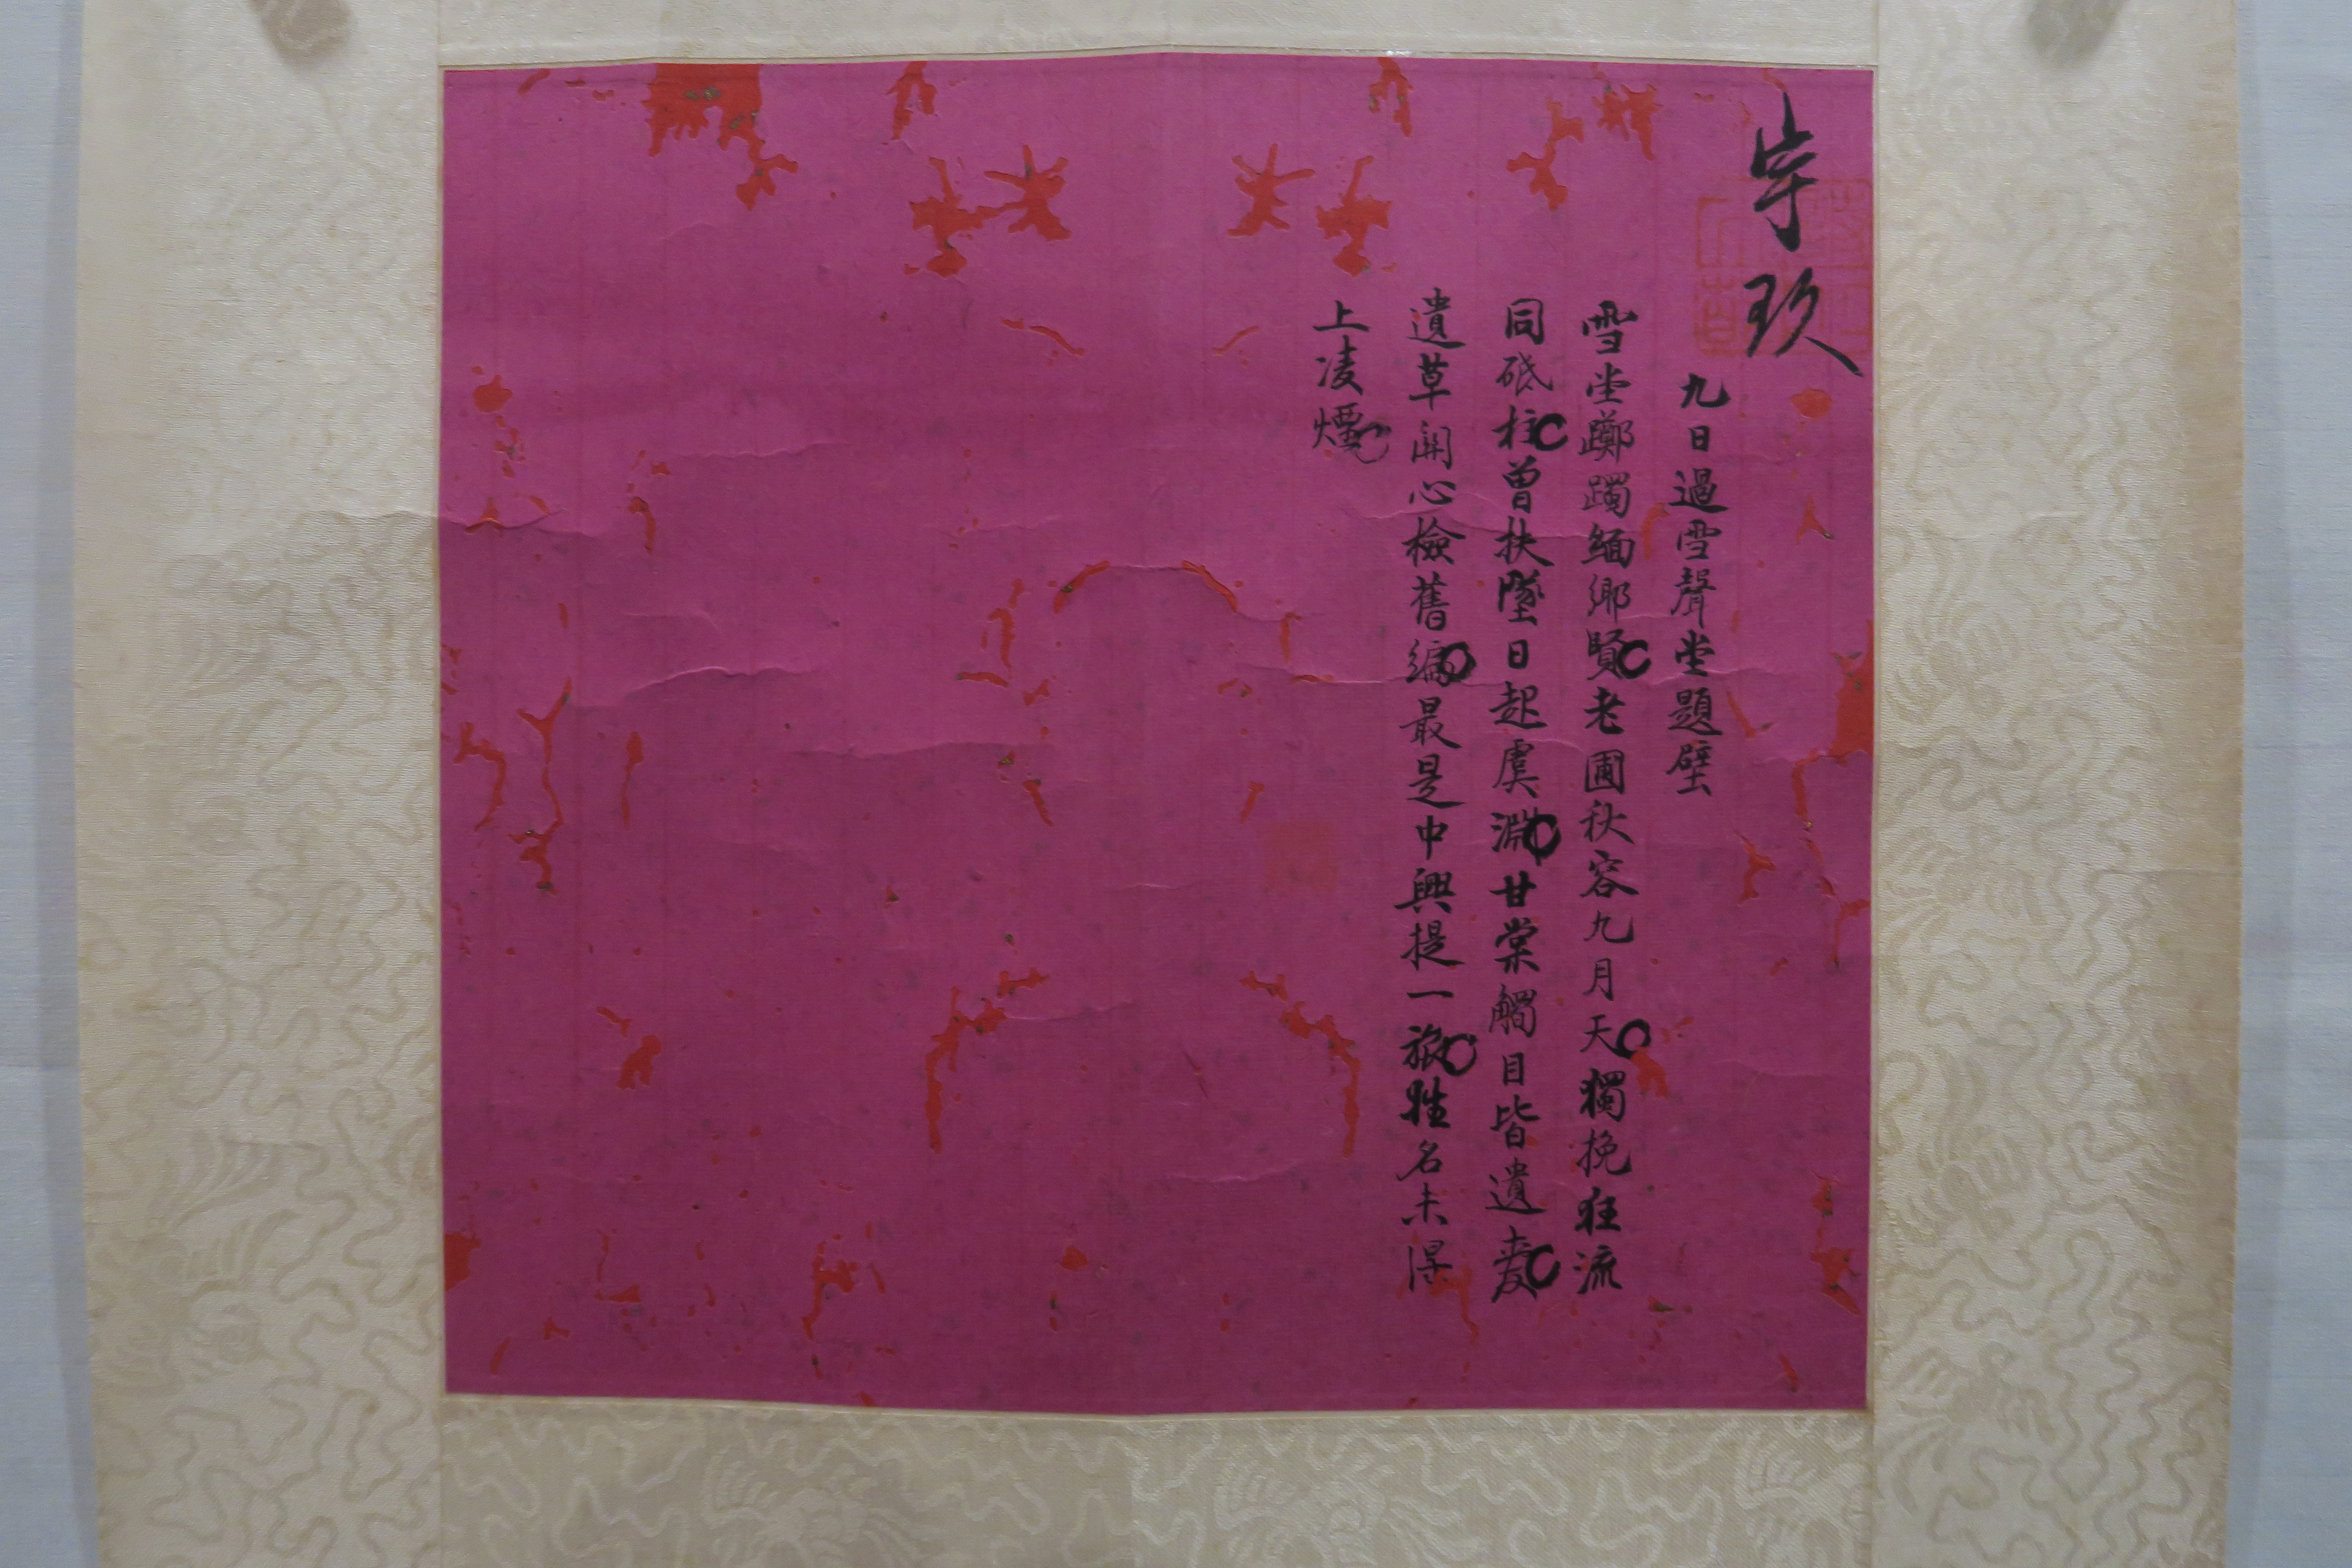 玖
九日過雪聲堂題壁
雪堂躑躅緬鄉賢老圃秋容九月天獨挽狂流
同砥柱曾扶墜日起虞淵甘棠觸目皆遺愛
遺草開心檢舊編最是中興提一旅姓名未得
上凌煙